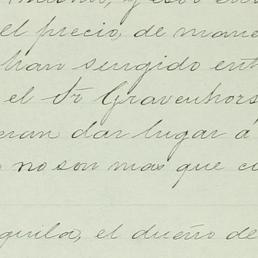 mismo, y eso en
el precio, de mane
han surgido ent
el Sr Gravenhors
eran dar lugar á
no son mas que c
quila, el dueño de